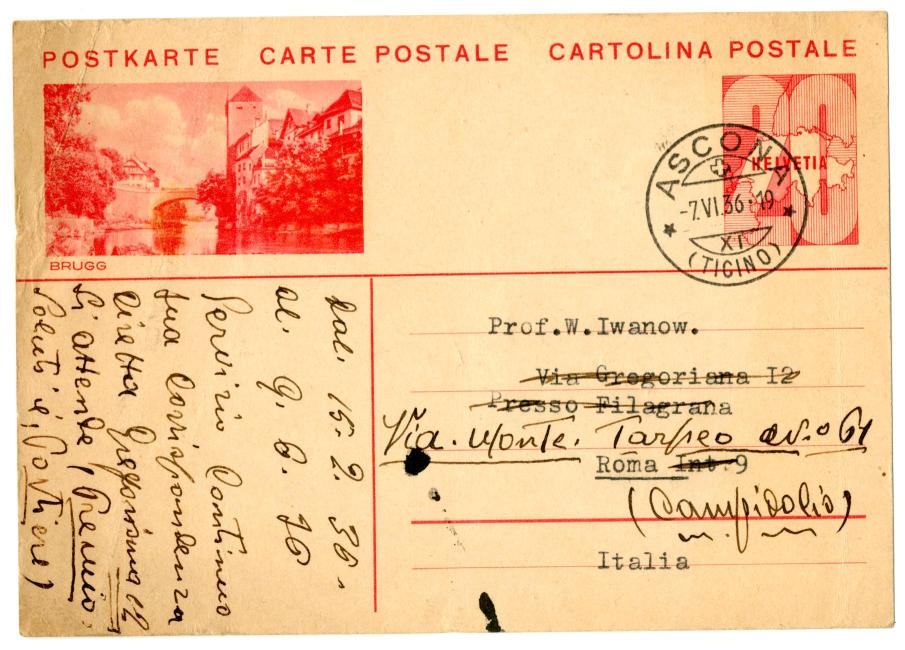 POSTKARTE CARTE POSTALE CARTOLINA POSTALE
BRUGG
HELVETIA
ASCONA
-7.VI.36·19
XI
(TICINO)
Prof.W.Iwanow.
Via Gregoriana I2
Presso Filagrana
Via. Monte. Tarpeo
Roma Int.9
(Campidolio)
Italia
Dal. 15. 2. 36.
al. 9. 6. 36
Servizio Continuo
sua Corrispondenza
diretta Gregoriana 12
Si attende, Premio.
Saluti il, Portiere)